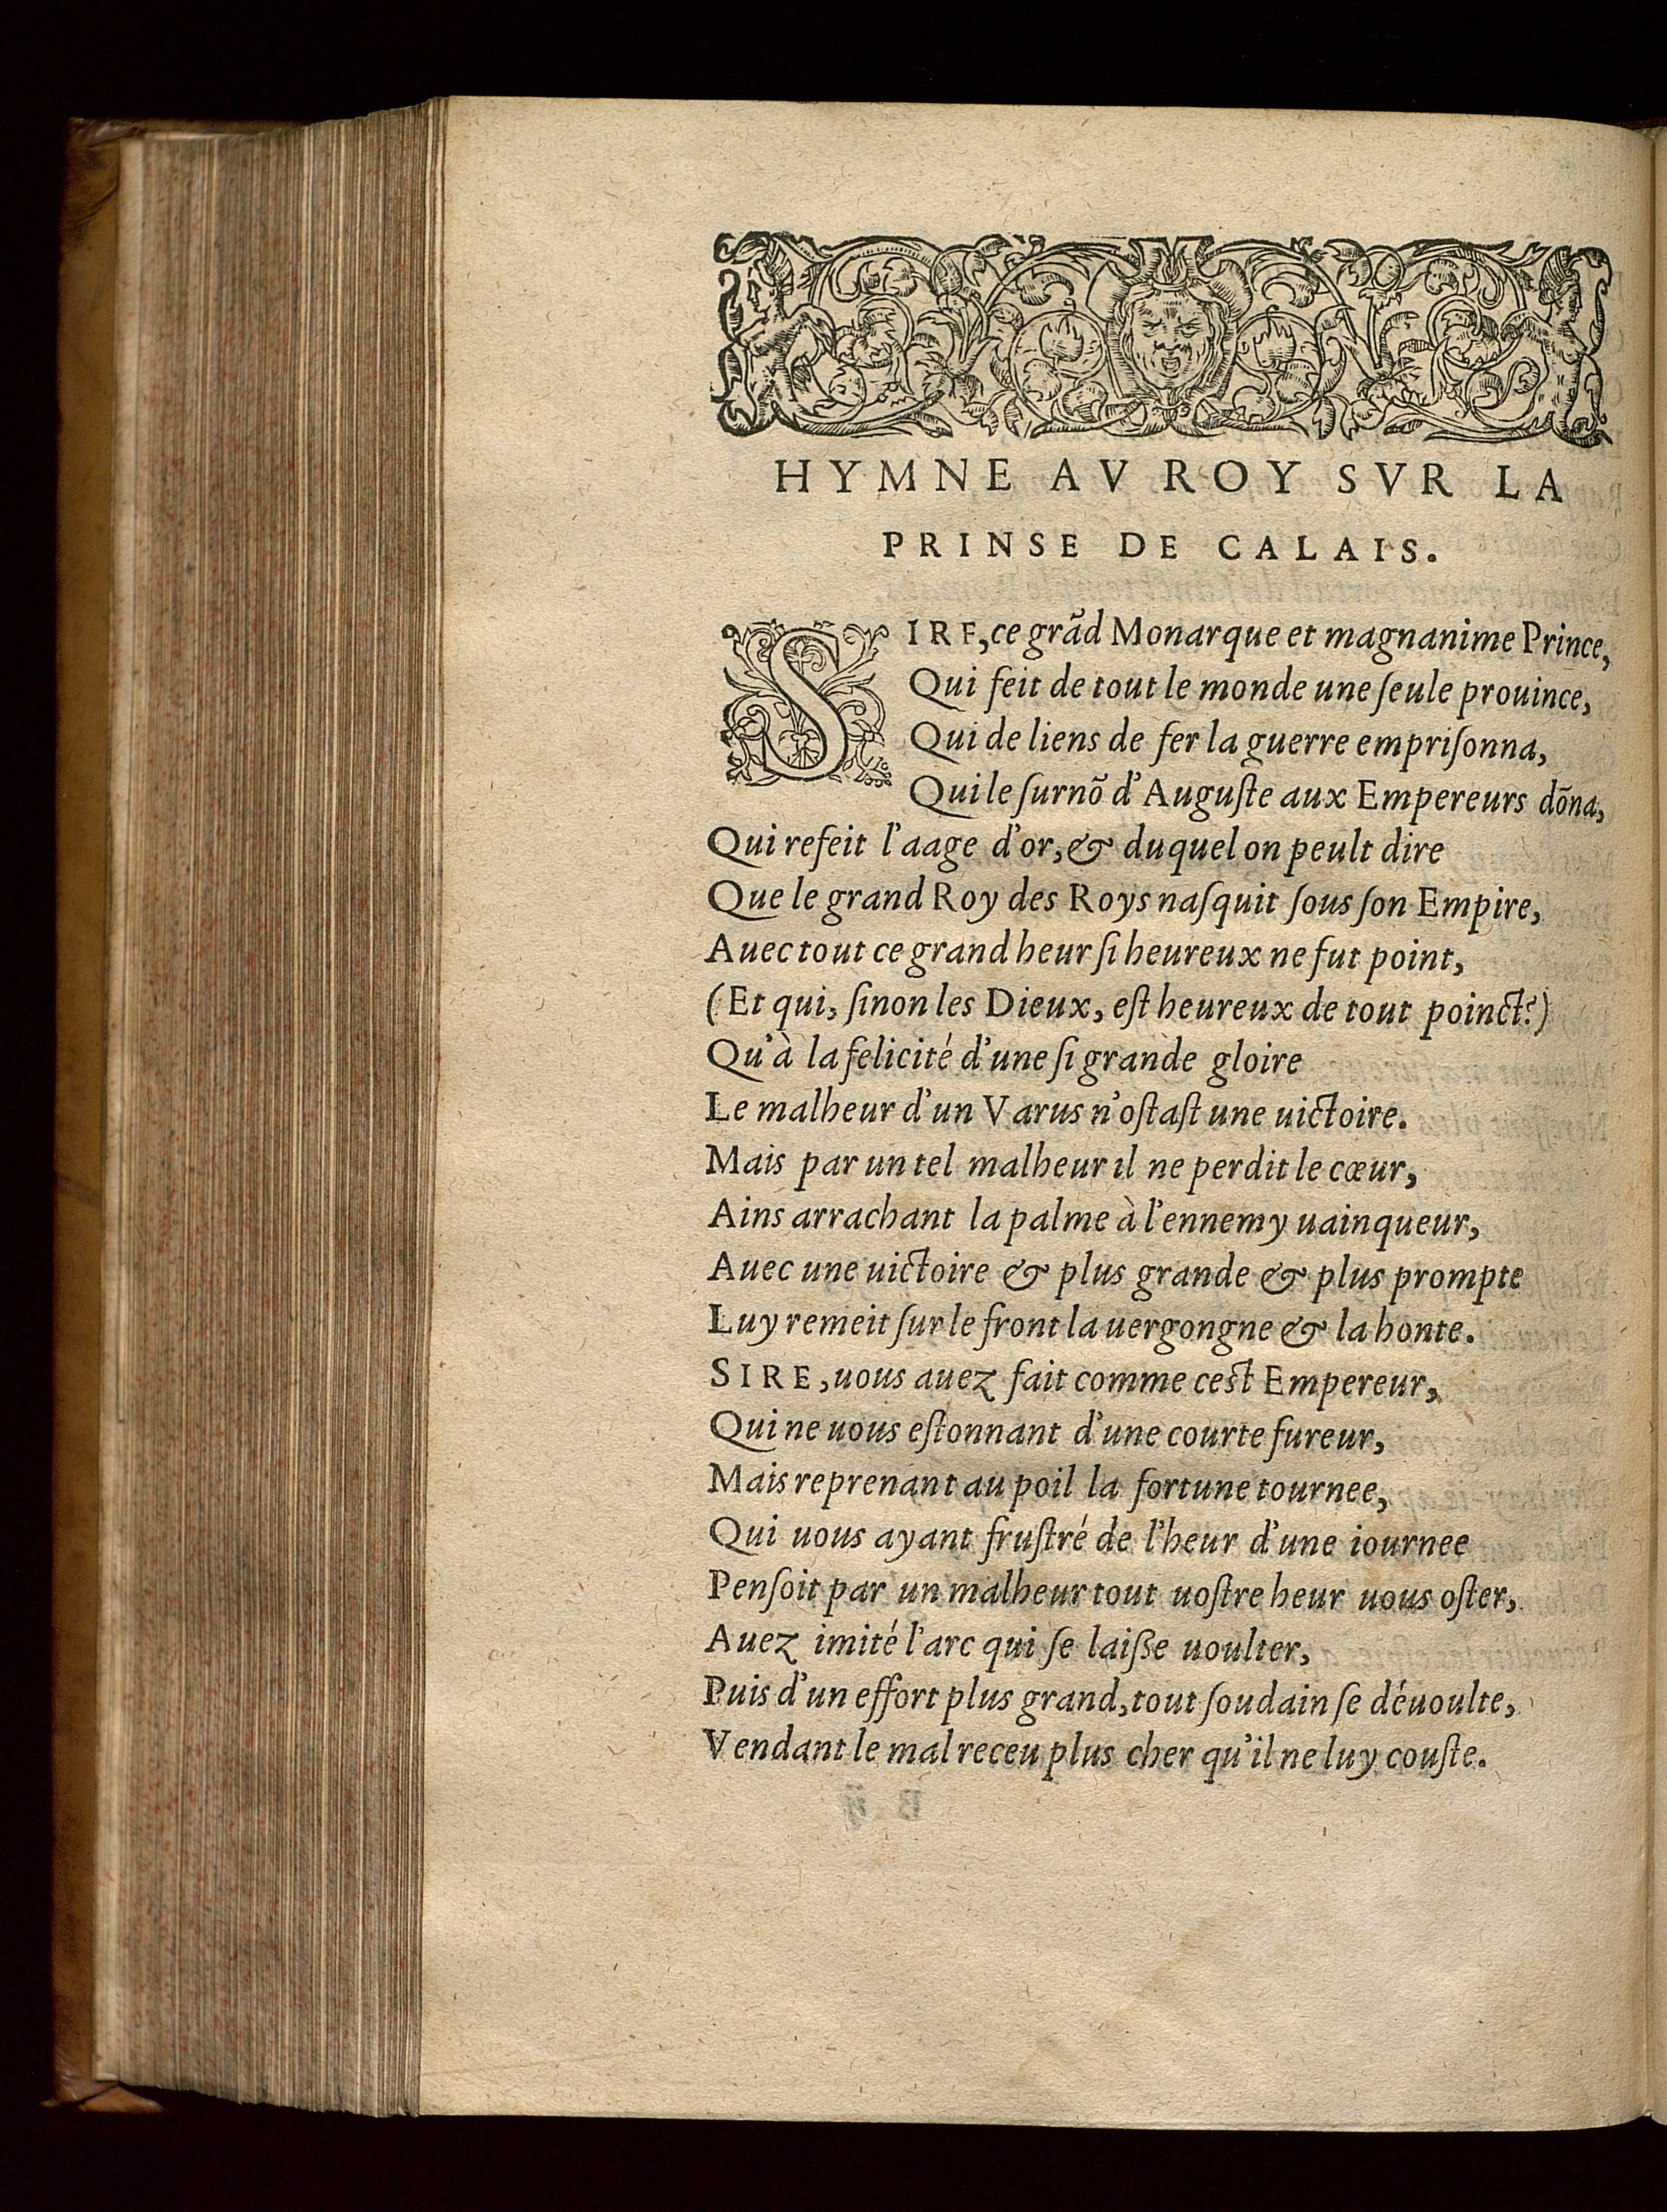 HYMNE AV ROY SVR LA
PRINSE DE CALAIS.
SIRE, ce grãd Monarque et magnanime Prince,
Qui feit de tout le monde une ſeule prouince,
Qui de liens de fer la guerre empriſonna,
Qui le ſurnõ d'Auguſte aux Empereurs dõna,
Qui refeit l'aage d'or, & duquel on peult dire
Que le grand Roy des Roys naſquit ſous ſon Empire,
Auec tout ce grand heur ſi heureux ne fut point,
(Et qui, ſinon les Dieux, eſt heureux de tout poinct?)
Qu'à la felicité d'une ſi grande gloire
Le malheur d'un Varus n'oſtaſt une uictoire.
Mais par un tel malheur il ne perdit le cœur,
Ains arrachant la palme à l'ennemy uainqueur,
Auec une uictoire & plus grande & plus prompte
Luy remeit ſur le front la uergongne & la honte.
SIRE, uous auez fait comme ceſt Empereur,
Qui ne uous eſtonnant d'une courte fureur,
Mais reprenant au poil la fortune tournee,
Qui uous ayant fruſtré de l'heur d'une iournee
Penſoit par un malheur tout uoſtre heur uous oſter,
Auez imité l'arc qui ſe laiße uoulter,
Puis d'un effort plus grand, tout ſoudain ſe déuoulte,
Vendant le mal receu plus cher qu'il ne luy couſte.